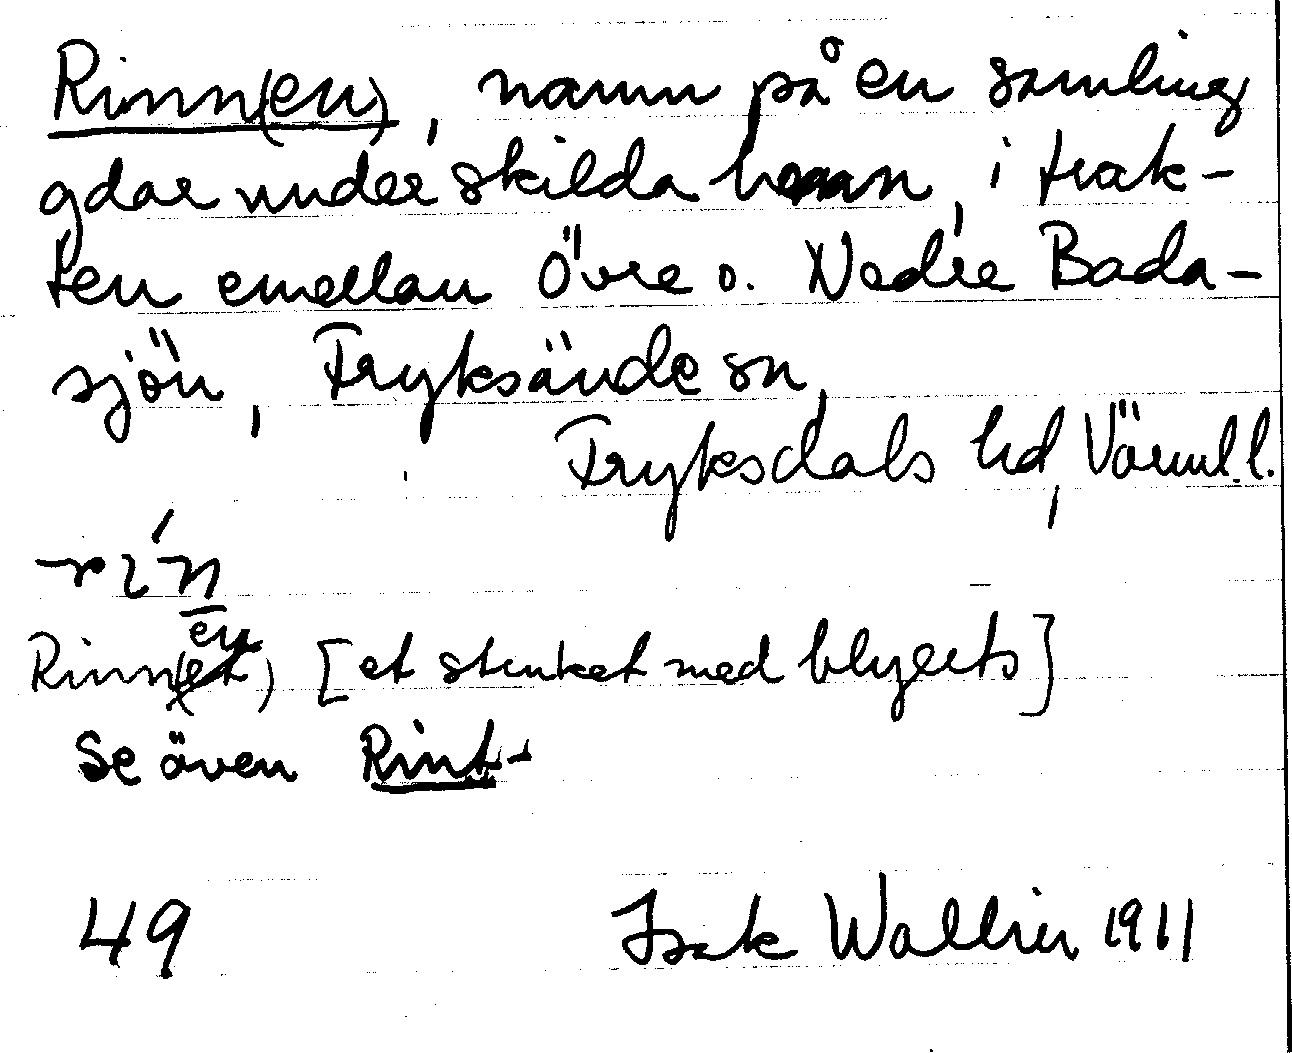 Rinn(en), namn på en samling
gdar under skilda namn, i trak-
ten emellan Övre o. Nedre Bada-
sjön, Fryksände sn,
Fryksdals hd, Värml. l.
Rinn(et) en [et struket med blyerts]
Se även Rint-
49 Isak Wallin 1911